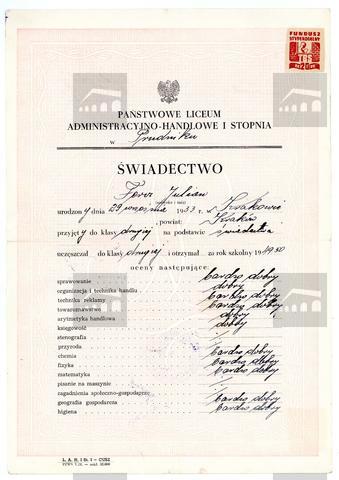 FUNDUSZ
STYPENDIALNY
2
TBS
PAŃSTWOWE LICEUM
ADMINISTRACYJNO-HANDLOWE I STOPNIA
w Prudniku
ŚWIADECTWO
Ferr Julian
(nazwisko i imię)
urodzony dnia 29 września 1933 r. w Krakowie
powiat: Kraków
przyjęty do klasy drugiej na podstawie świadectwa
uczęszczał do klasy drugiej i otrzymał za rok szkolny 1949/50
oceny następujące:
sprawowanie bardzo dobry
organizacja i technika handlu dobry
technika reklamy bardzo dobry
towaroznawstwo bardzo dobry
arytmetyka handlowa dobry
księgowość dobry
stenografia
przyroda bardzo dobry
chemia bardzo dobry
fizyka bardzo dobry
matematyka bardzo dobry
pisanie na maszynie
zagadnienia społeczno-gospodarcze
geografia gospodarcza bardzo dobry
higiena bardzo dobry
L. A. H. I St. 1 - CUSZ